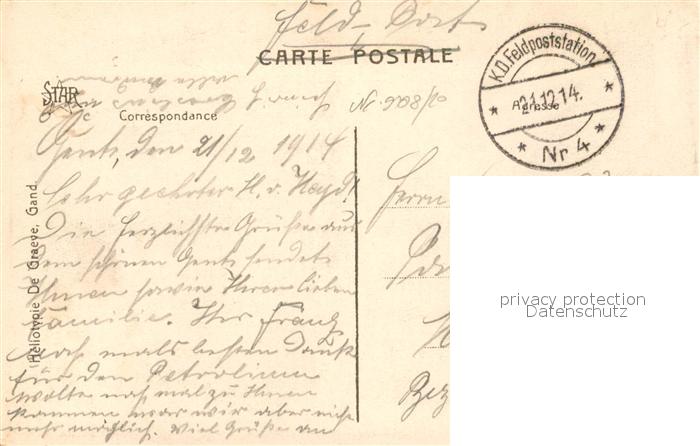 Feld-Post
CARTE POSTALE
K.D. Feldpoststation
21.12.14.
Nr 4
STAR
Correspondance
Adresse
Gent, den 21/12 1914
Sehr geehrter H. v. Heyd!
Die herzlichsten Grüße aus
dem schönen Gent sendet
Ihnen sowie Ihrer lieben
Familie. Ihr Franz
noch mals besten Dank
für den Petrolium
wollte noch mal zu Ihnen
kommen war mir aber nicht
mehr möglich. Viel Grüße an
Herrn
Bez
Héliotypie De Graeve, Gand.
privacy protection
Datenschutz